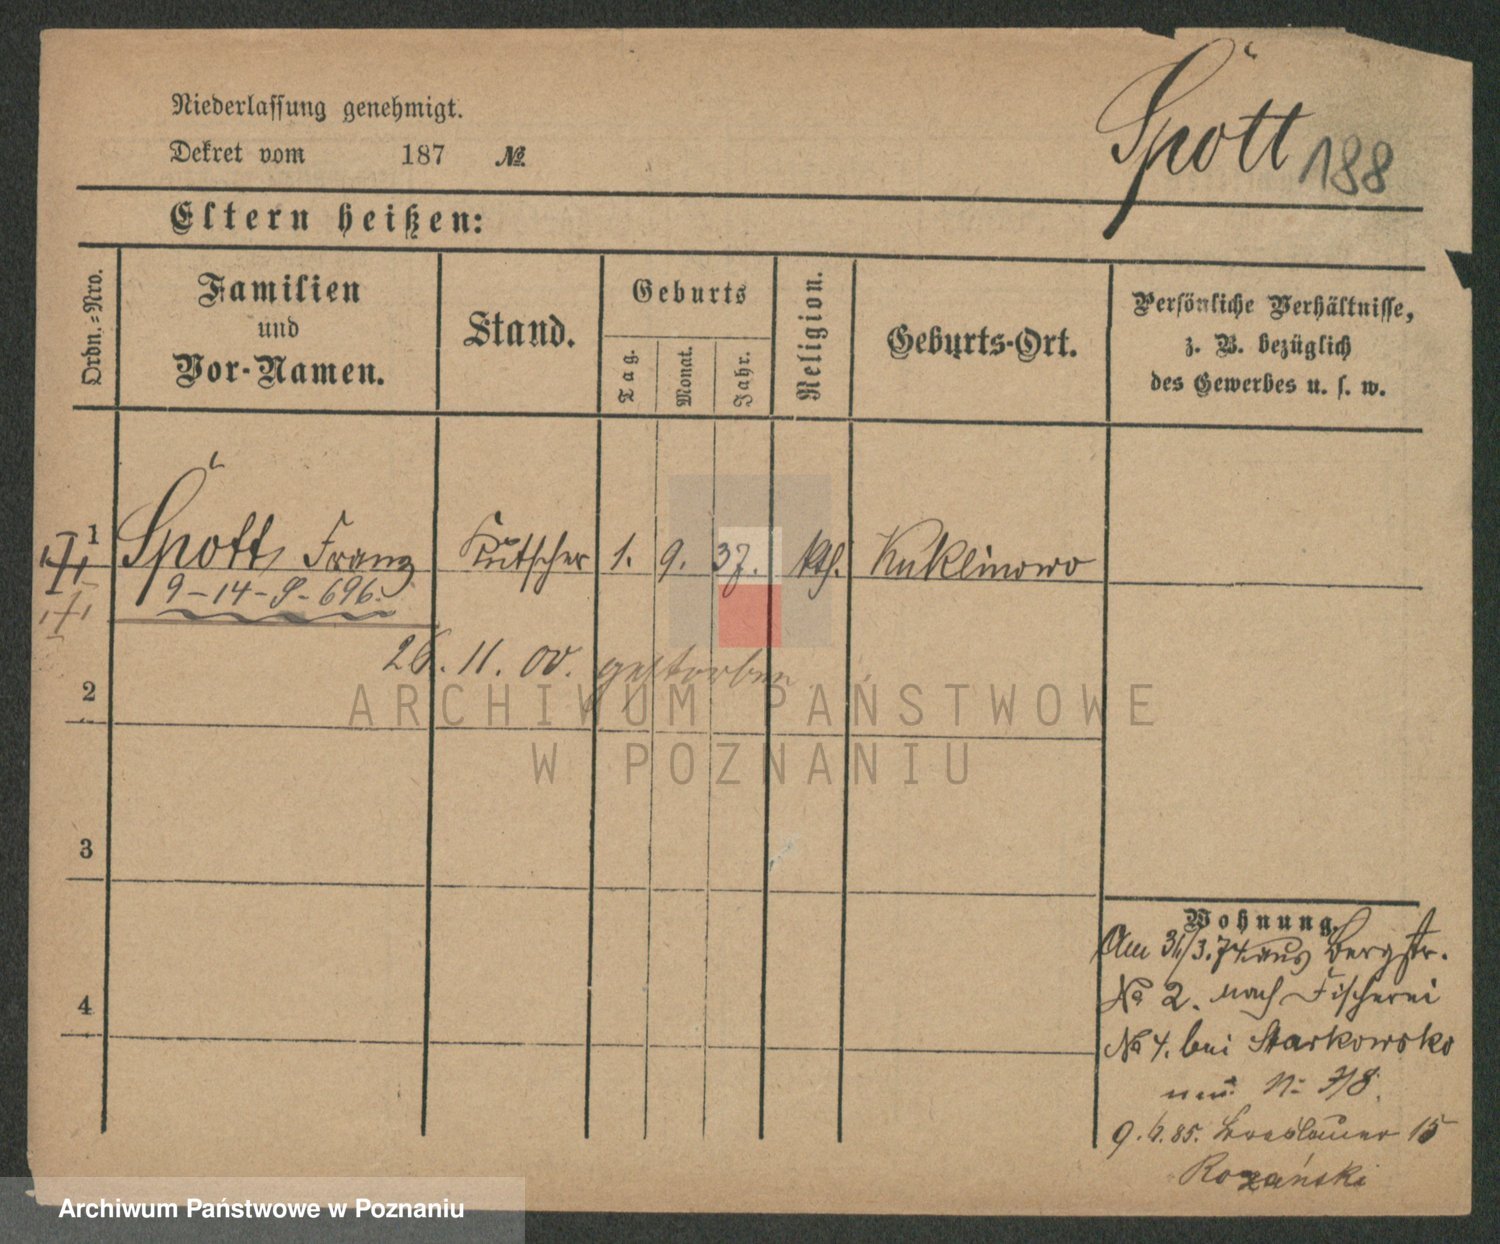 Niederlassung genehmigt.
Dekret vom 187 №
Spott 188
Eltern heißen:
Ordn.-Nro.
Familien und Vor-Namen.
Stand.
Geburts
Tag.
Monat.
Jahr.
Religion.
Geburts-Ort.
Persönliche Verhältnisse,
z. B. bezüglich
des Gewerbes u. s. w.
1 Spott, Franz Kutscher 1. 9. 37. kth. Kuklinowo
9-14-9-696.
26. 11. 00. gestorben
2
3
4
Wohnung.
Am 31/3.74 aus Bergstr.
№ 2. nach Fischerei
№ 4. bei Starkowsko
neu № 7/8.
9. 6. 85. Breslauer 15
Rozański
ARCHIWUM PAŃSTWOWE
W POZNANIU
Archiwum Państwowe w Poznaniu